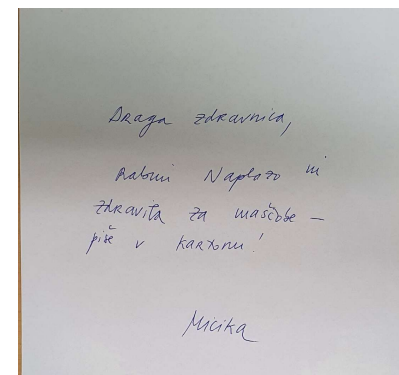 Draga zdravnica,
rabim Naplazo in
zdravila za maščobe –
piše v kartonu!
Micika